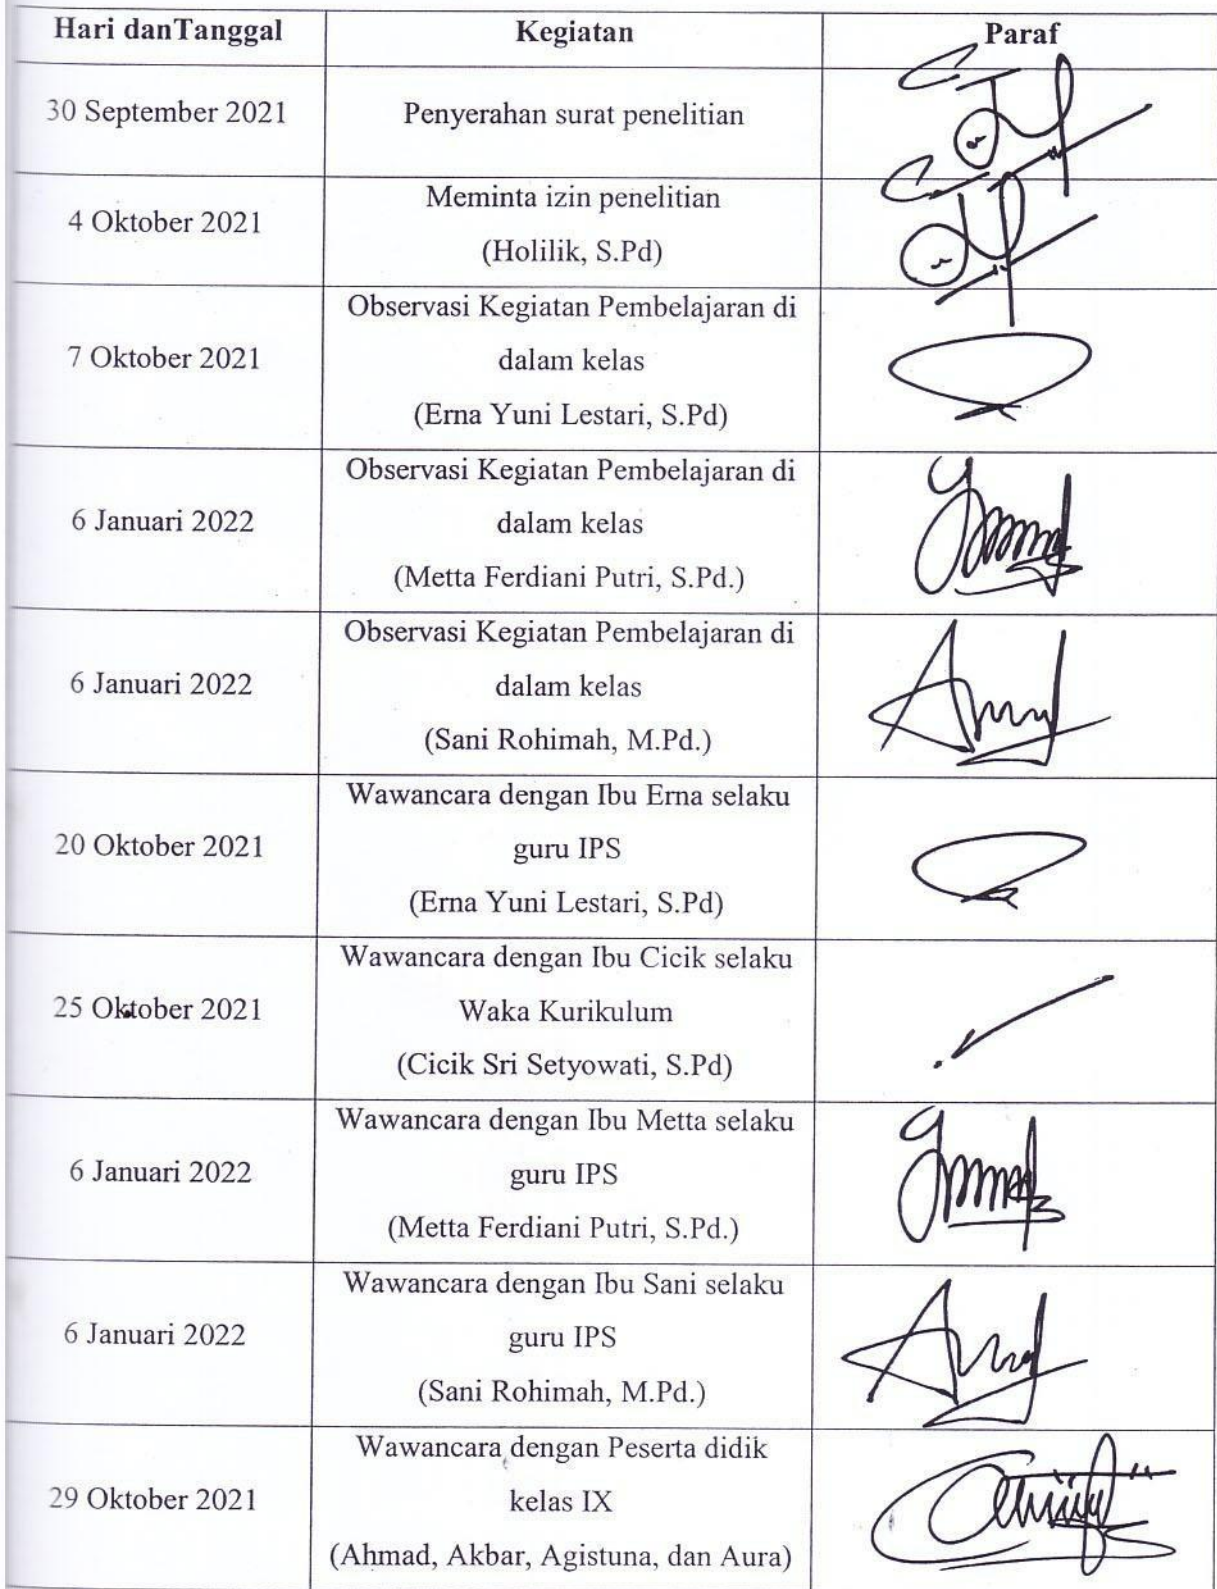 Hari danTanggal
Kegiatan
Paraf
30 September 2021
Penyerahan surat penelitian
4 Oktober 2021
Meminta izin penelitian
(Holilik, S.Pd)
7 Oktober 2021
Observasi Kegiatan Pembelajaran di
dalam kelas
(Erna Yuni Lestari, S.Pd)
6 Januari 2022
Observasi Kegiatan Pembelajaran di
dalam kelas
(Metta Ferdiani Putri, S.Pd.)
6 Januari 2022
Observasi Kegiatan Pembelajaran di
dalam kelas
(Sani Rohimah, M.Pd.)
20 Oktober 2021
Wawancara dengan Ibu Erna selaku
guru IPS
(Erna Yuni Lestari, S.Pd)
25 Oktober 2021
Wawancara dengan Ibu Cicik selaku
Waka Kurikulum
(Cicik Sri Setyowati, S.Pd)
6 Januari 2022
Wawancara dengan Ibu Metta selaku
guru IPS
(Metta Ferdiani Putri, S.Pd.)
6 Januari 2022
Wawancara dengan Ibu Sani selaku
guru IPS
(Sani Rohimah, M.Pd.)
29 Oktober 2021
Wawancara dengan Peserta didik
kelas IX
(Ahmad, Akbar, Agistuna, dan Aura)